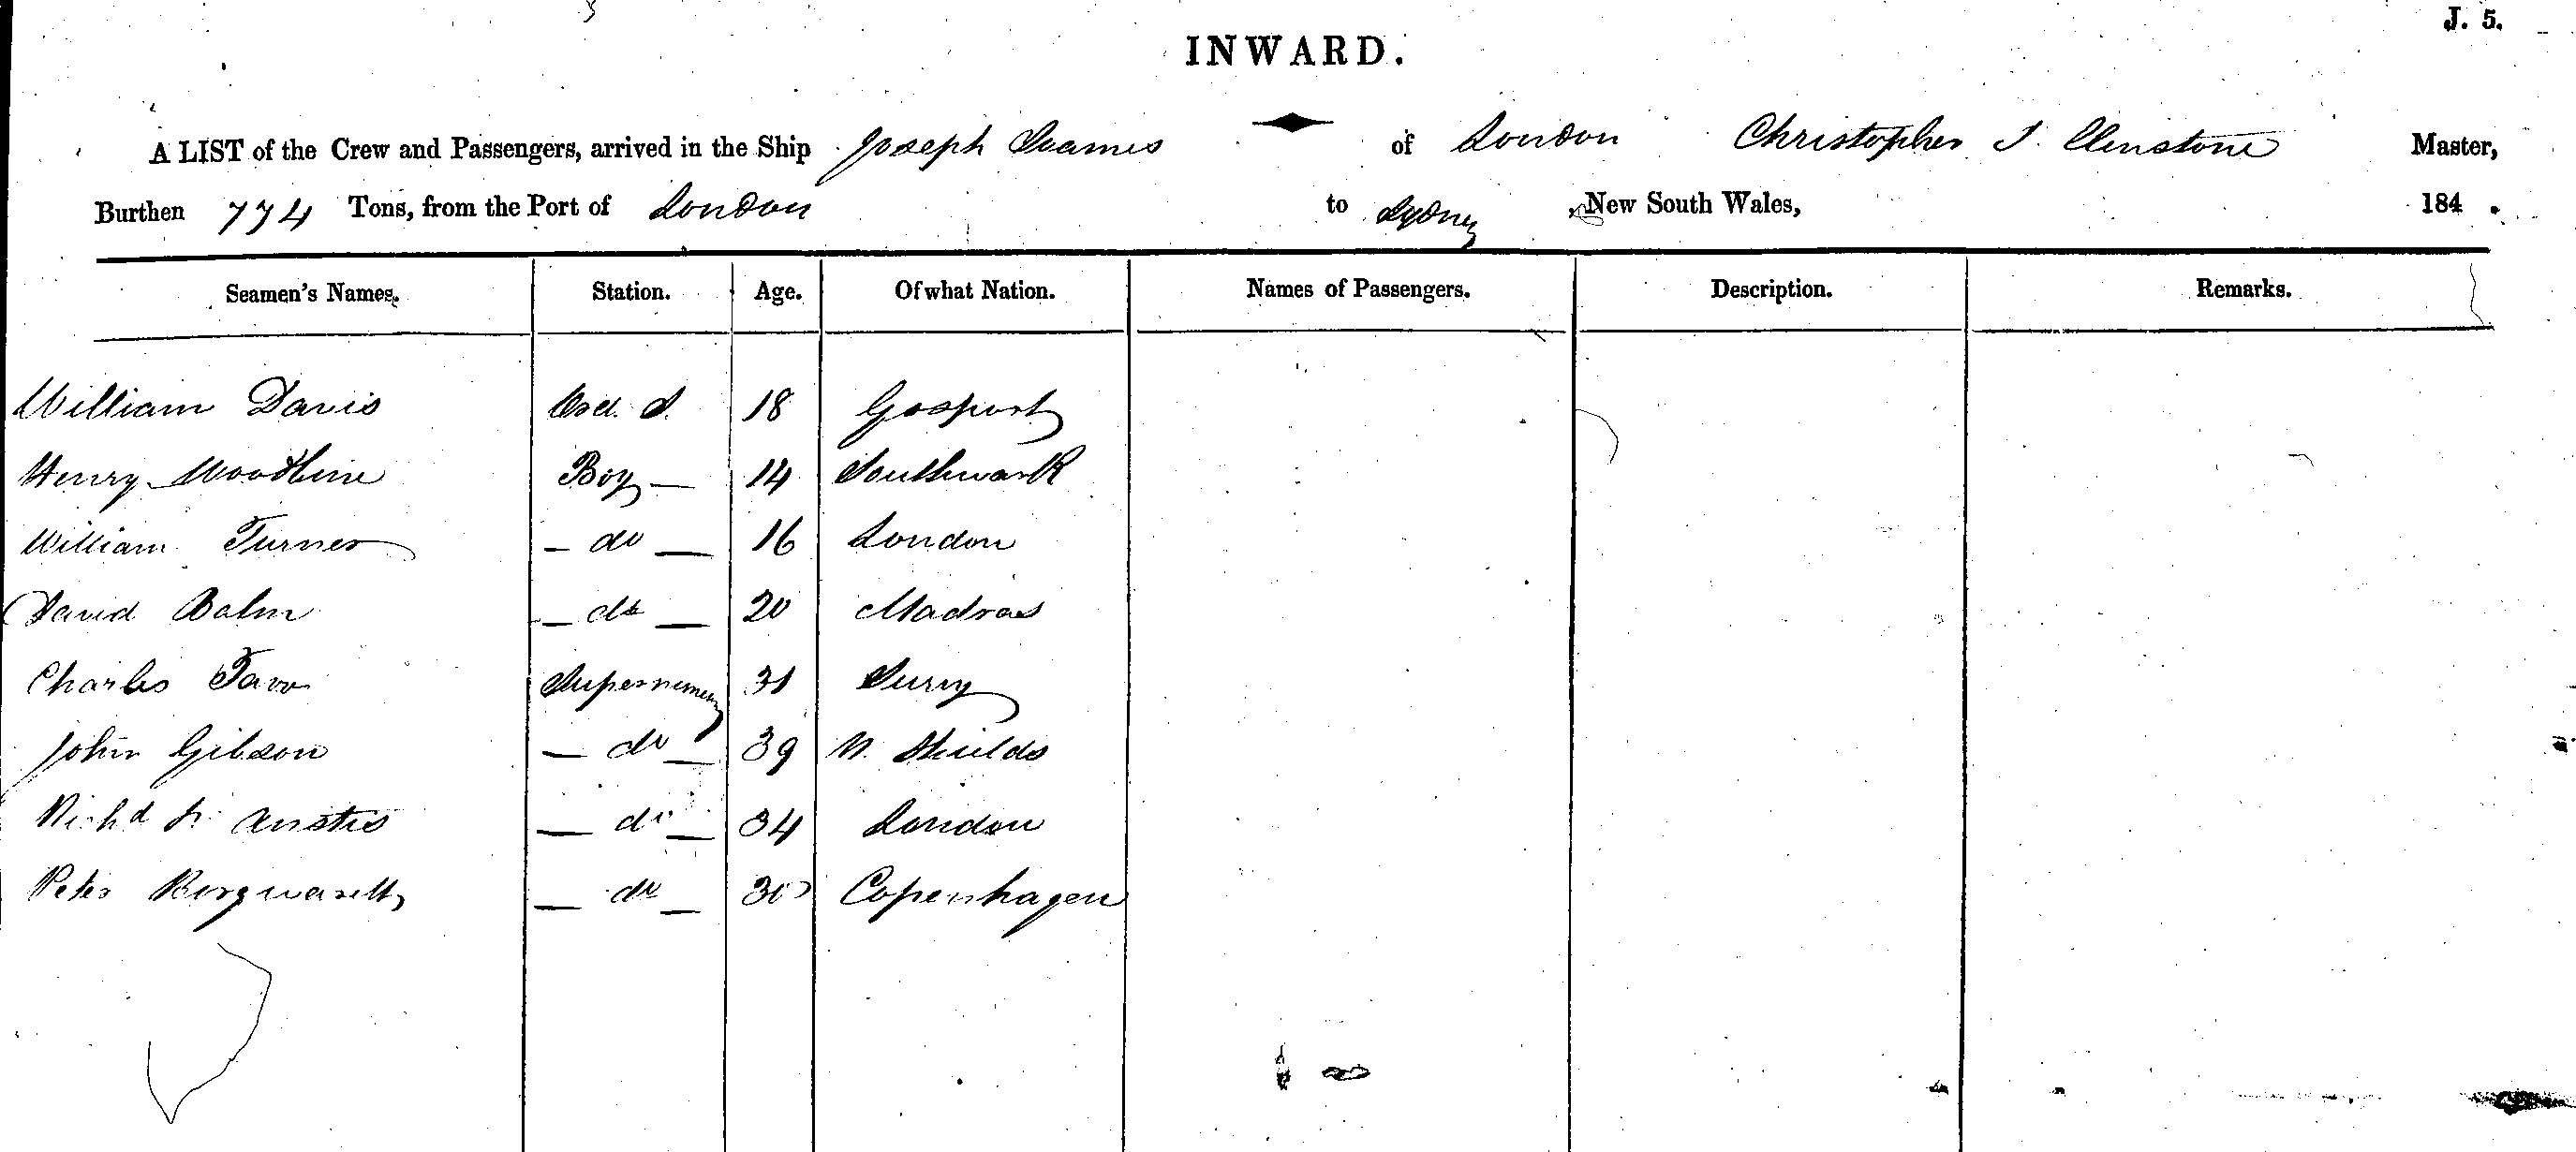 J. 5.
INWARD.
A LIST of the Crew and Passengers, arrived in the Ship Joseph Soames of London Christopher J. Clenstone Master,
Burthen 774 Tons, from the Port of London to Sydney, New South Wales, 184 .
Seamen's Names. Station. Age. Of what Nation. Names of Passengers. Description. Remarks.
William Davis Ord. S. 18 Gosport
Henry Woodbine Boy — 14 Southwark
William Turner — do — 16 London
David Balm — do — 20 Madras
Charles 31 Surry
John Gibson — do — 39 N. Shields
Richd Anstis — do — 34 London
Peter — do — 30 Copenhagen